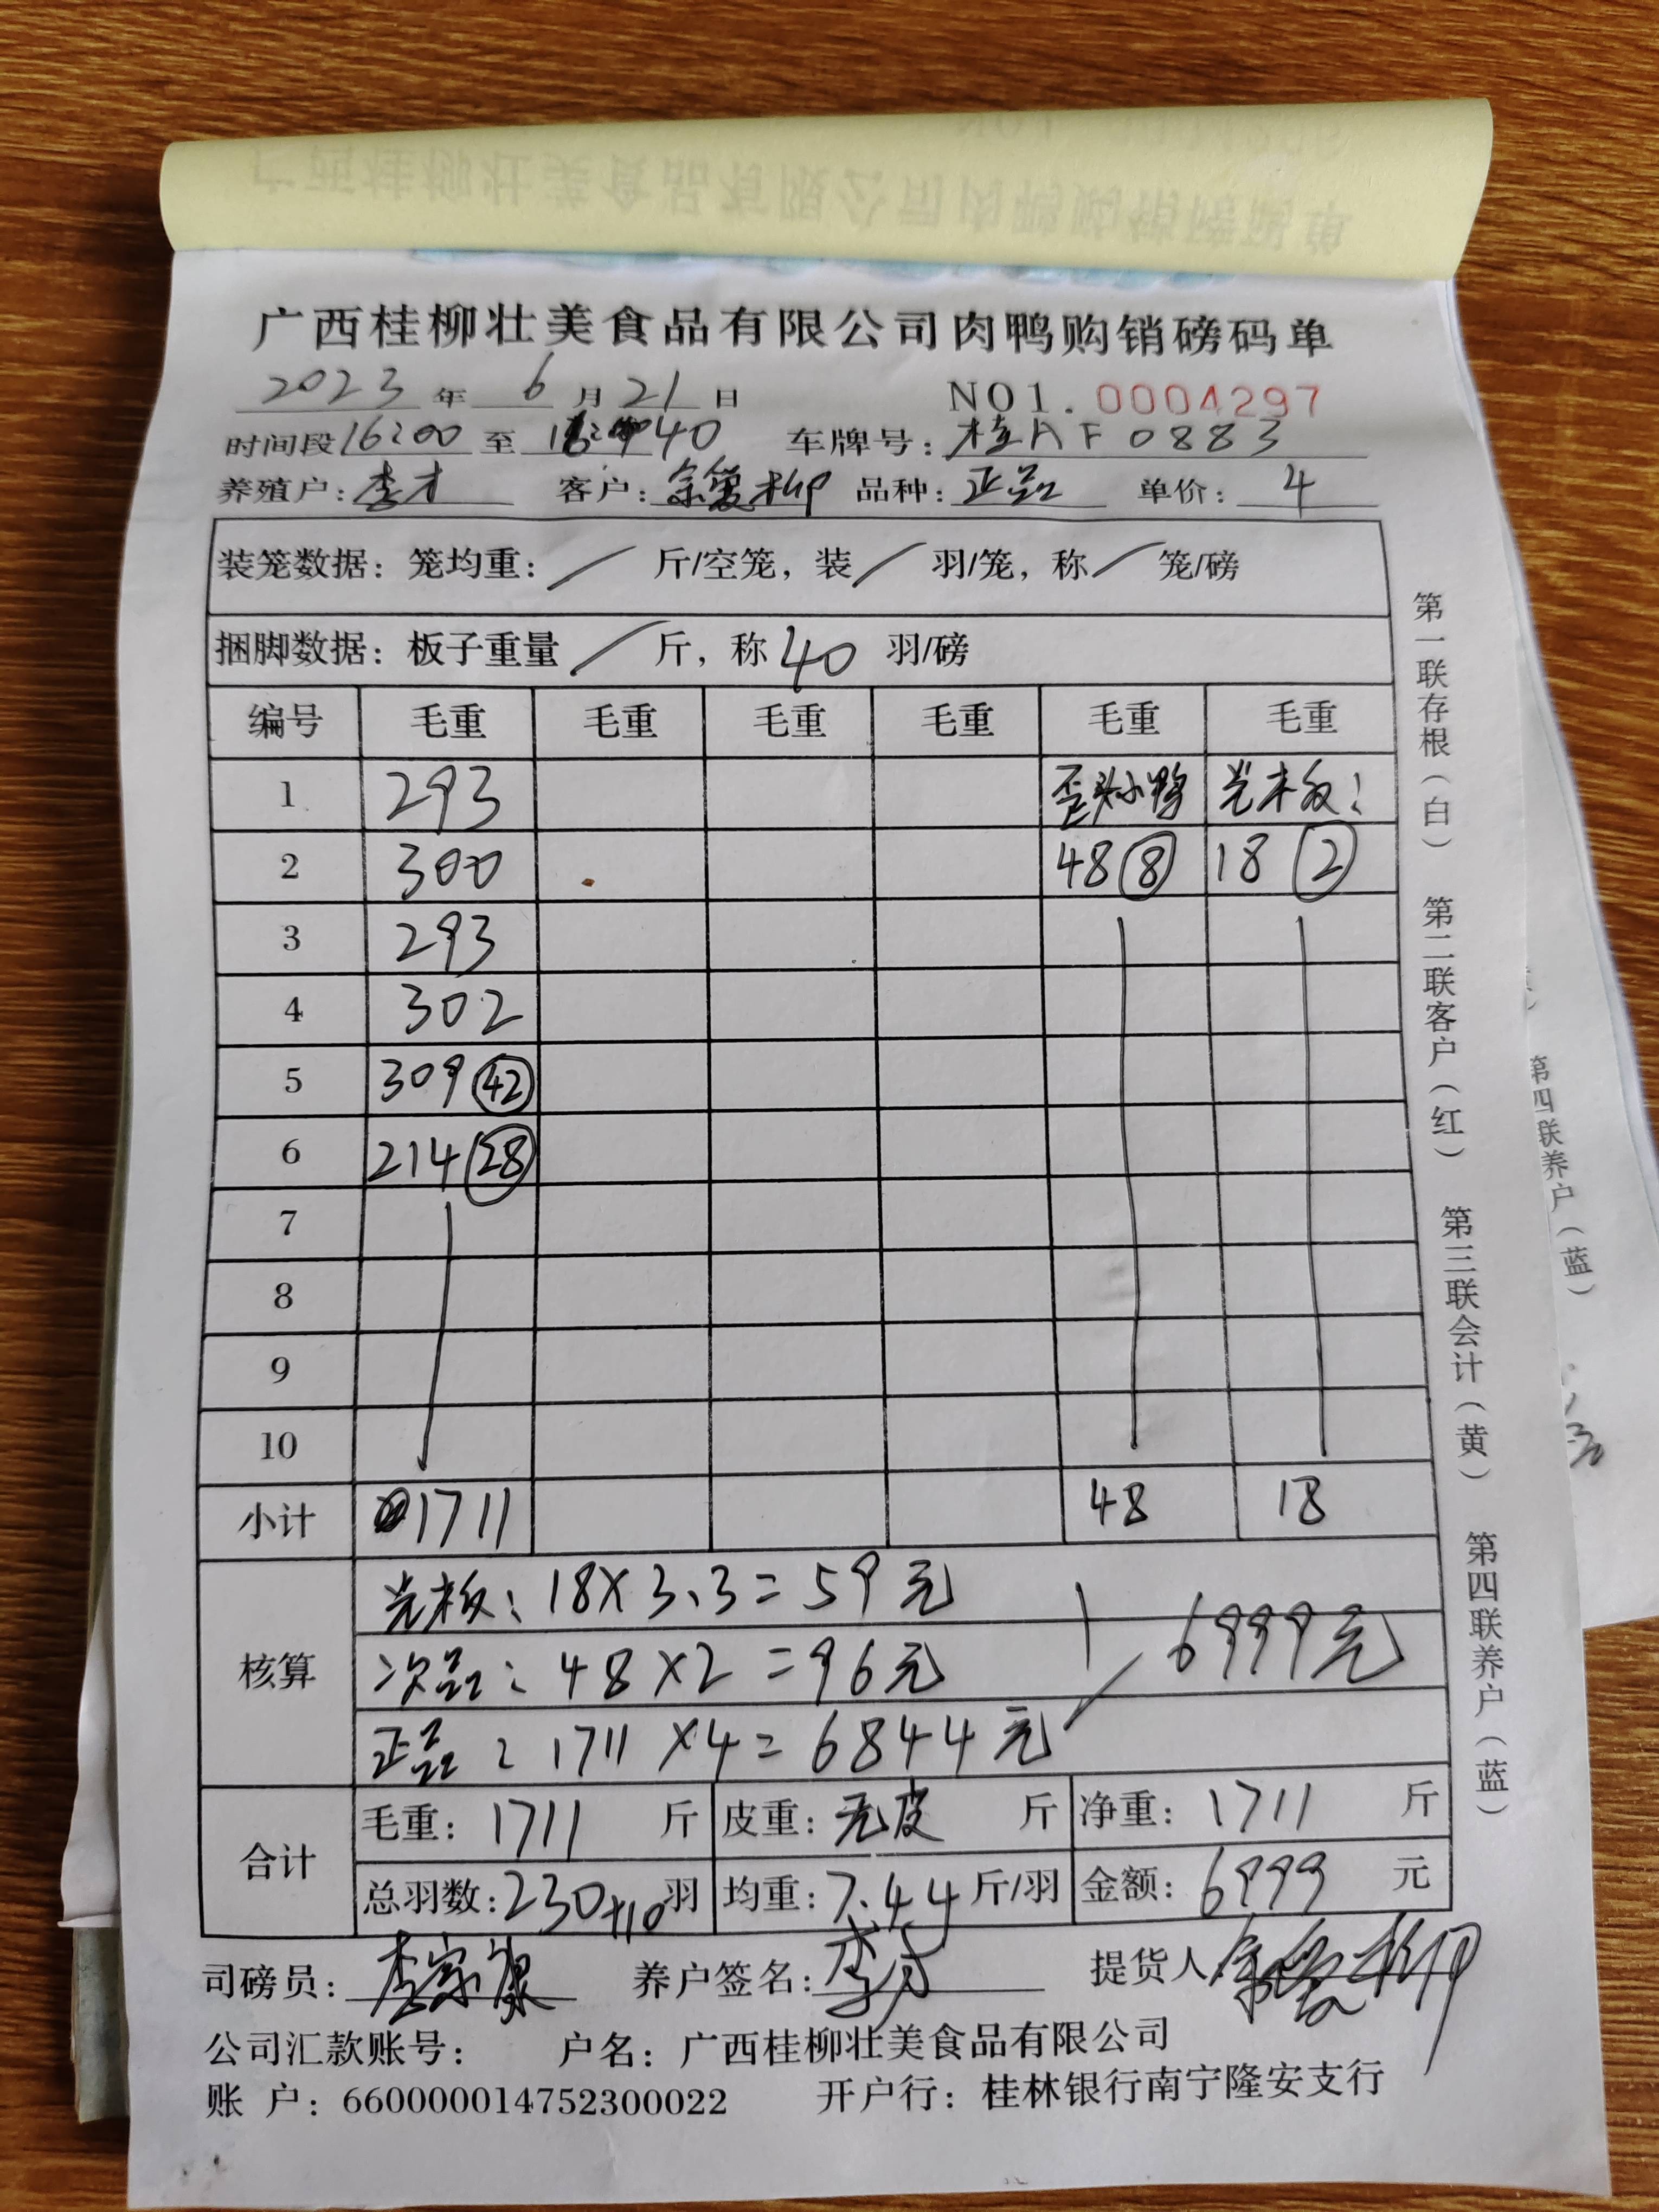 广西桂柳壮美食品有限公司肉鸭购销磅码单
2023 年 6 月 21 日 NO1. 0004297
时间段 16:00 至 40 车牌号: 桂AF0883
养殖户: 李才 客户: 余爱柳 品种: 正品 单价: 4
装笼数据: 笼均重: / 斤/空笼, 装 / 羽/笼, 称 / 笼/磅
捆脚数据: 板子重量 / 斤, 称 40 羽/磅
编号 毛重 毛重 毛重 毛重 毛重 毛重
1 293 歪头小鸭 光板:
2 300 48 ⑧ 18 ②
3 293
4 302
5 309 ㊷
6 214 ㉘
7
8
9
10
小计 1711 48 18
核算
光板: 18×3.3=59元
次品: 48×2=96元 6999元
正品: 1711×4=6844元
合计
毛重: 1711 斤 皮重: 无皮 斤 净重: 1711 斤
总羽数: 230+10 羽 均重: 7.44 斤/羽 金额: 6999 元
司磅员: 李宗康 养户签名: 李才 提货人 余爱柳
公司汇款账号: 户名: 广西桂柳壮美食品有限公司
账 户: 660000014752300022 开户行: 桂林银行南宁隆安支行
第一联存根(白) 第二联客户(红) 第三联会计(黄) 第四联养户(蓝)
第四联养户(蓝)